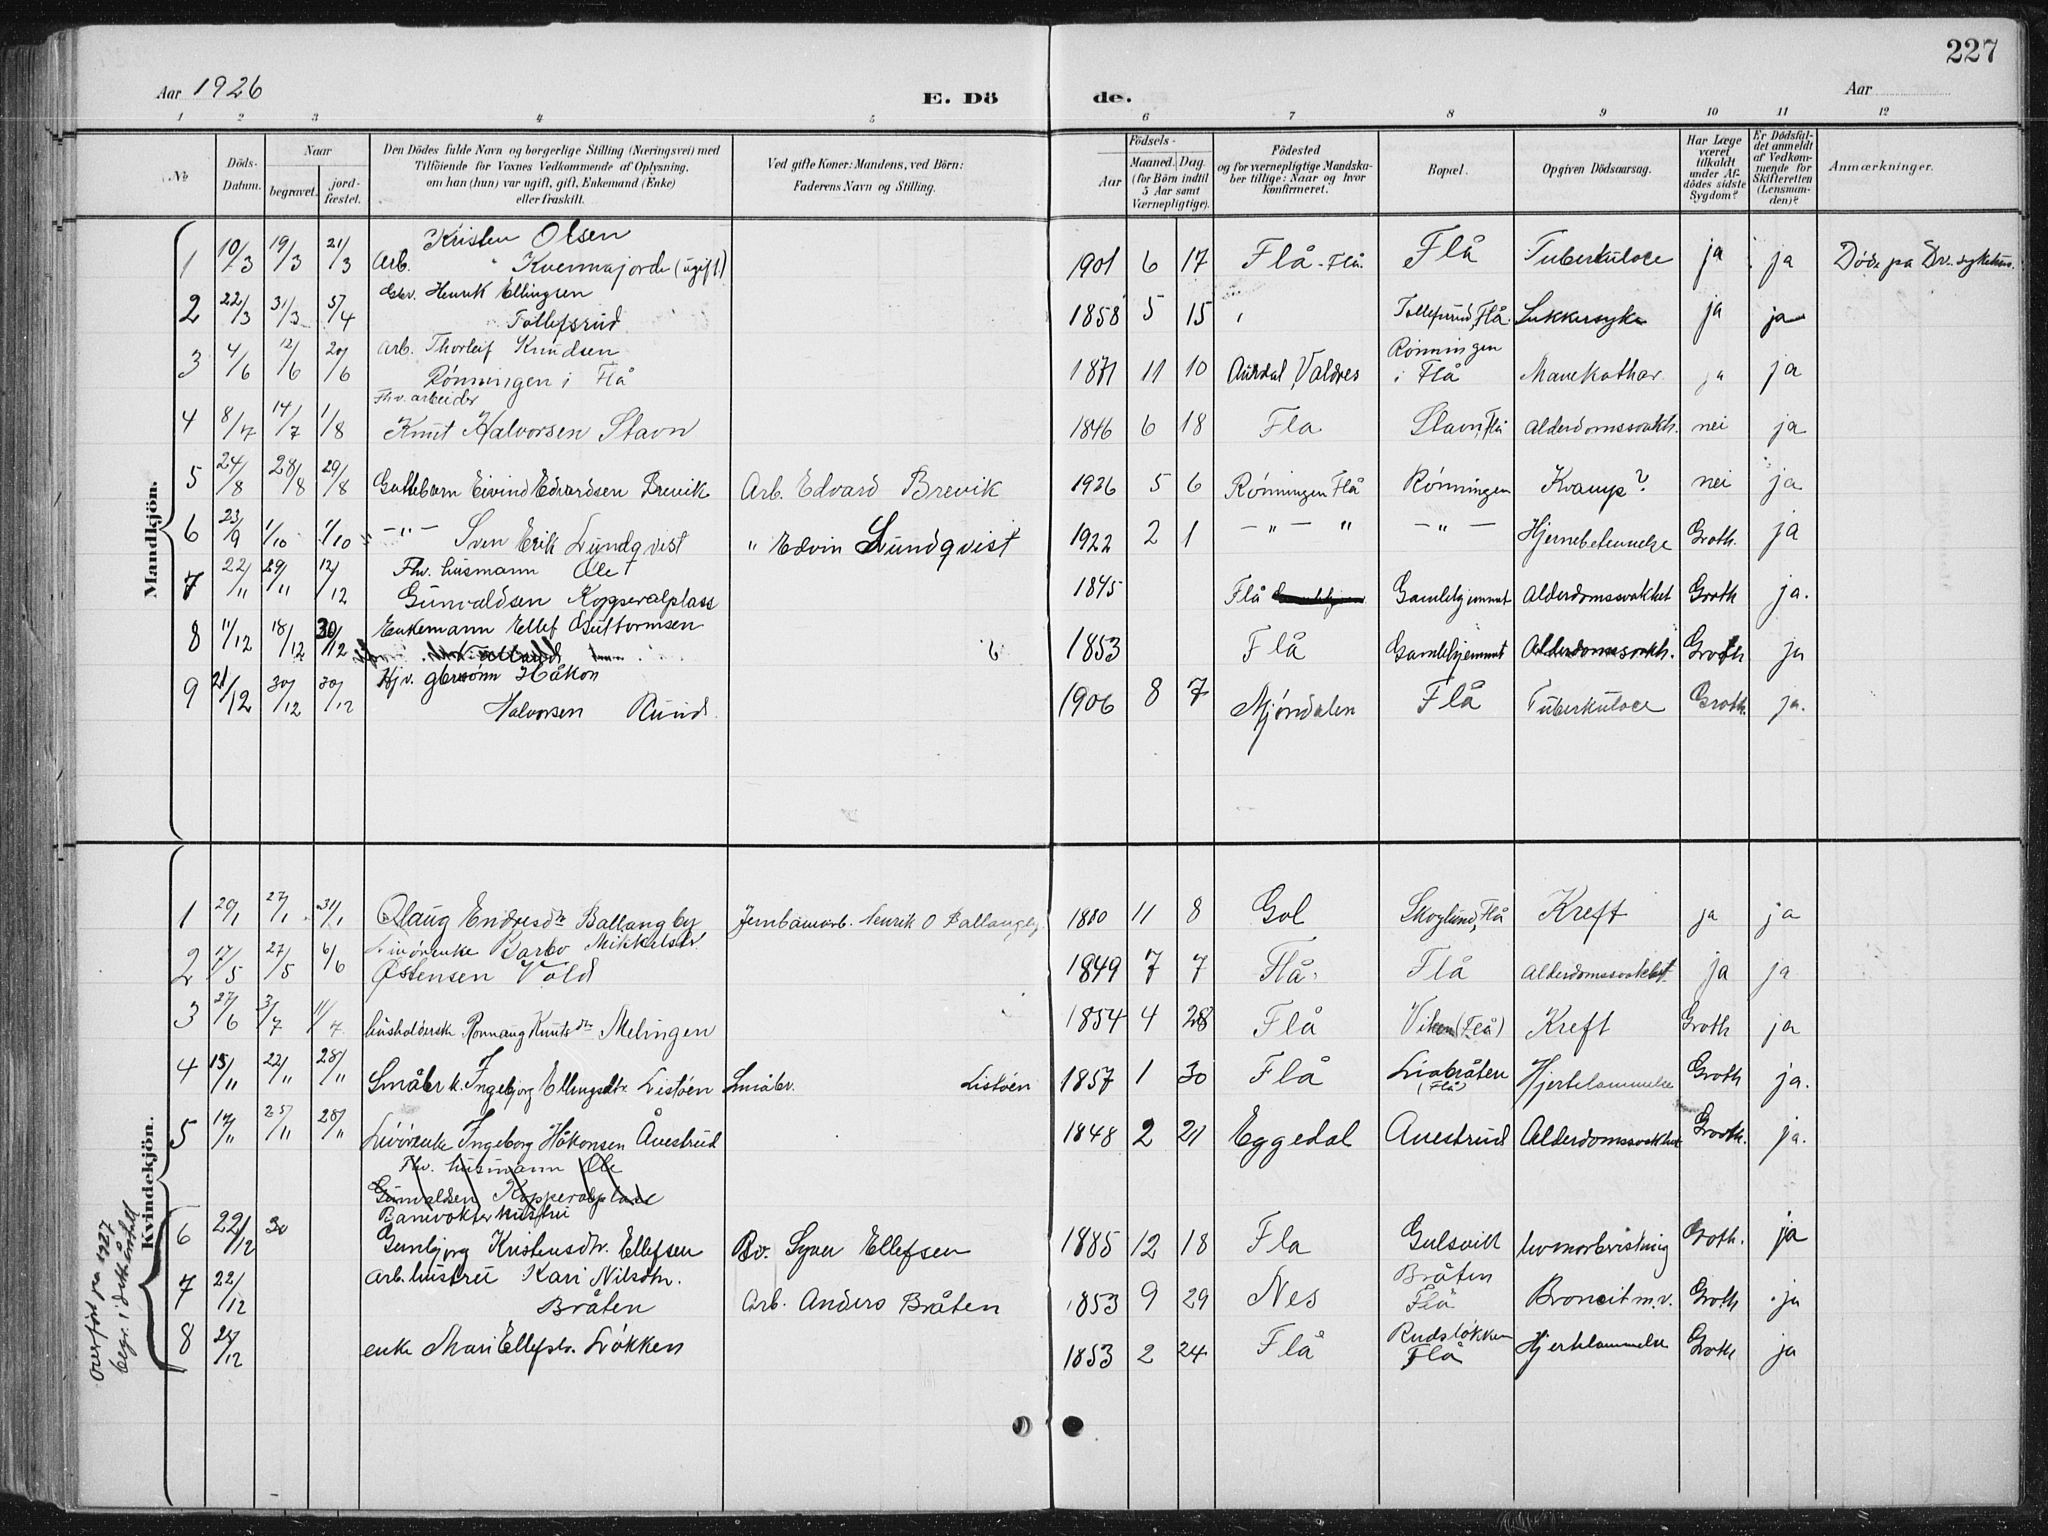 227
Aar 1926
E. Dö
de.
Aar
1 2 3 4 5 6 7 8 9 10 11 12
No
Döds-Datum.
Naar
begravet.
jord-fæstet.
Den Dödes fulde Navn og borgerlige Stilling (Næringsvei) med
Tilföiende for Voxnes Vedkommende af Oplysning,
om han (hun) var ugift, gift, Enkemand (Enke)
eller fraskilt.
Ved gifte Koner: Mandens, ved Börn:
Faderens Navn og Stilling.
Födsels-
Aar
Maaned. Dag.
(for Börn indtil
5 Aar samt
Værnepligtige).
Födested
og for værnepligtige Mandska-
ber tillige: Naar og hvor
Konfirmeret.
Bopæl.
Opgiven Dödsaarsag.
Har Læge
været
tilkaldt
under Af-
dödes sidste
Sygdom?
Er Dödsfal-
det anmeldt
af Vedkom-
mende for
Skifteretten
(Lensman-
den)?
Anmærkninger.
Mandkjön.
Kristen Olsen
1 10/3 19/3 21/3 Arb. " Kvernmajorde (ugift) 1901 6 17 Flå - Flå. Flå Tuberkulose ja ja Døde på Dr. sykehus.
Gbr. Henrik Ellingsen
2 22/3 31/3 5/4 Tollefsrud 1858 5 15 Tollefsrud, Flå. Sukkersyke ja ja
Arb. Thorleif Knudsen
3 4/6 12/6 20/6 Rønningen i Flå 1871 11 10 Aurdal, Valdres Rønningen i Flå Mavekathar. ja ja
Fhv. arbeider
4 8/7 14/7 1/8 Knut Halvorsen Stavn 1846 6 18 Fla Stavn, Flå Alderdomssvakh. nei ja
5 24/8 28/8 29/8 Guttebarn Eivind Edvardsen Brevik Arb. Edvard Brevik 1926 5 6 Rønningen Flå Rønningen Krampe? nei ja
6 23/9 1/10 1/10 - " - Sven Erik Lundqvist " Edvin Lundqvist 1922 2 1 - " - " - " - Hjernebetennelse Groth. ja
Fhv. husmann Ole
7 22/11 29/11 12/12 Gunvaldsen Kopperalplass 1845 Flå Gamlehjemmet Alderdomssvakhet Groth ja.
Enkemann Ellef Guttormsen
8 11/12 18/12 30/12 1853 Flå Gamlehjemmet Alderdomssvakh. Groth ja
Hjv. gbrsønn Håkon
9 21/12 30/12 30/12 Halvorsen Ruud. 1906 8 7 Mjøndalen Flå Tuberkulose Groth ja.
Kvindekjön.
1 20/1 27/1 31/1 Olaug Endresdtr Ballangby Jernbanearb. Henrik O Ballangby. 1880 11 8 Gol Skoglund, Flå Kreft ja ja
Livørenke Barbo Mikkelsdr.
2 17/5 27/5 6/6 Østensen Vold 1849 7 7 Flå. Flå Alderdomssvakhet ja ja
3 27/6 3/7 11/7 husholderske Ronnaug Knutsdtr Melingen 1854 4 28 Flå Viken (Flå) Kreft Groth ja
4 15/11 22/11 28/11 Småbr k. Ingebjorg Ellingsdtr Listøen Småbr. Listøen 1857 1 30 Flå Liabråten (Flå) Hjertelammelse Groth ja.
5 17/11 25/11 28/11 Livørenke Ingeborg Håkonsen Auestrud 1848 2 21 Eggedal Auestrud Alderdomssvakhet Groth. ja.
Fhv. husmann Ole
Gunvaldsen Kopperalplass
Banevokter hustru
6 22/12 30 Gunbjorg Kristensdtr. Ellefsen Bv. Syver Ellefsen 1885 12 18 Fla Gulsvik Groth. ja
7 22/12 Arb. hustru Kari Nilsdtr.
Bråten Arb. Anders Bråten 1853 9 29 Nes Bråten Flå Broncit m.v. Groth ja
8 24/12 enke Mari Ellefsdr. Løkken 1853 2 24 Flå Rudsløkken Flå Hjertelammelse Groth ja
Overført pa 1927
begr. i dette årstall